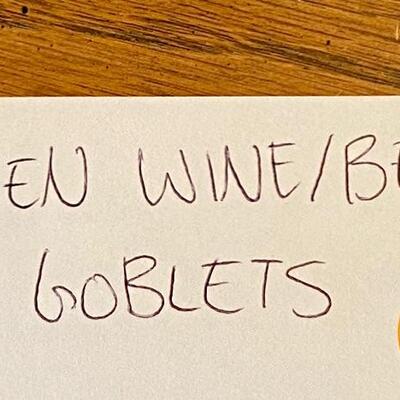 EN WINE/BE
GOBLETS